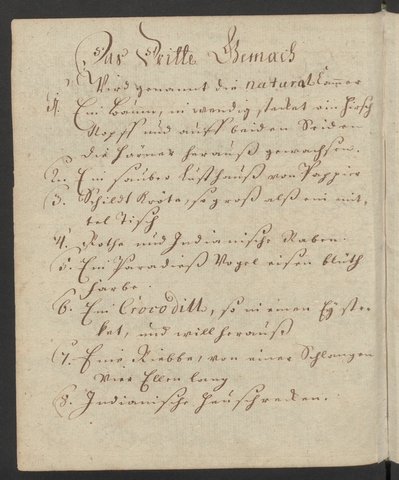 Das Dritte Gemach
Wird genannt die naturalkamer
1. Ein Baum, in wendig, stecket ein Hirsch
Kopff und auff beiden Seiden
die Hörner herauß gewachsen.
2. Ein sauber Lusthauß von Pappir
3. Schildt Kröte, so groß alß ein mit-
tel Tisch
4. Rothe und Indianische Raben.
5. Ein Paradieß Vogel eisen bluth
farbe.
6. Ein Crocodill, so in einen Ey ste-
ket, und will herauß
7. Eine Riebbe, von einer Schlangen
Vier Ellen lang
8. Indianische Heuschrecken.